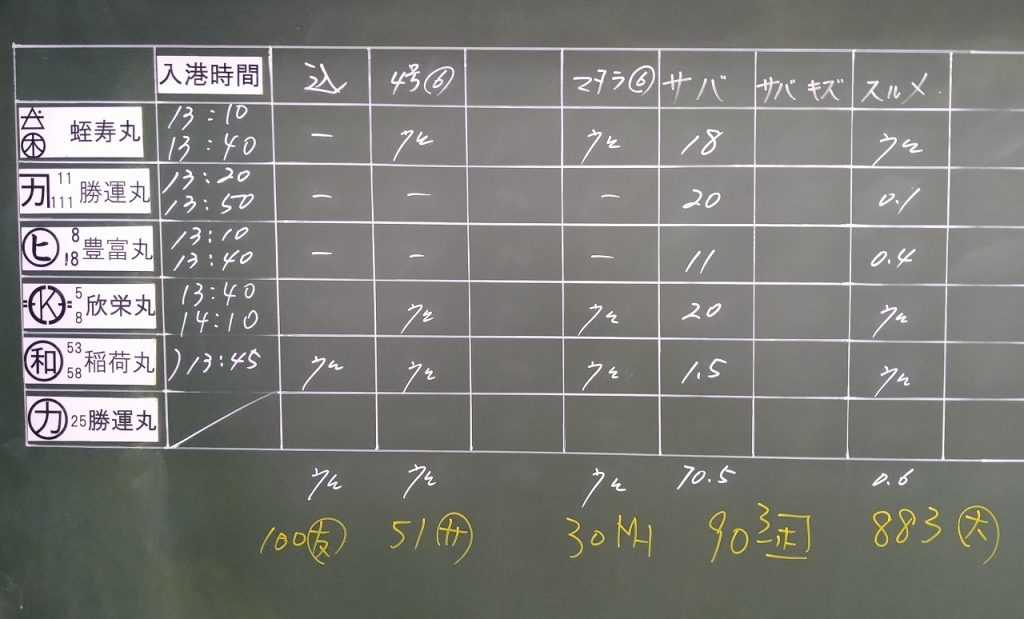 入港時間 込 4号⑥ マダラ⑥ サバ サバキズ スルメ
木 蛭寿丸 13:10 13:40 ー ウム ウム 18 ウム
カ 11 111 勝運丸 13:20 13:50 ー ー ー 20 0.1
ヒ 8 18 豊富丸 13:10 13:40 ー ー ー 11 0.4
K 5 8 欣栄丸 13:40 14:10 ウム ウム 20 ウム
和 53 58 稲荷丸 )13:45 ウム ウム ウム 1.5 ウム
カ 25 勝運丸
ウム ウム ウム 70.5 0.6
100 友 51 サ 30 90 883 大